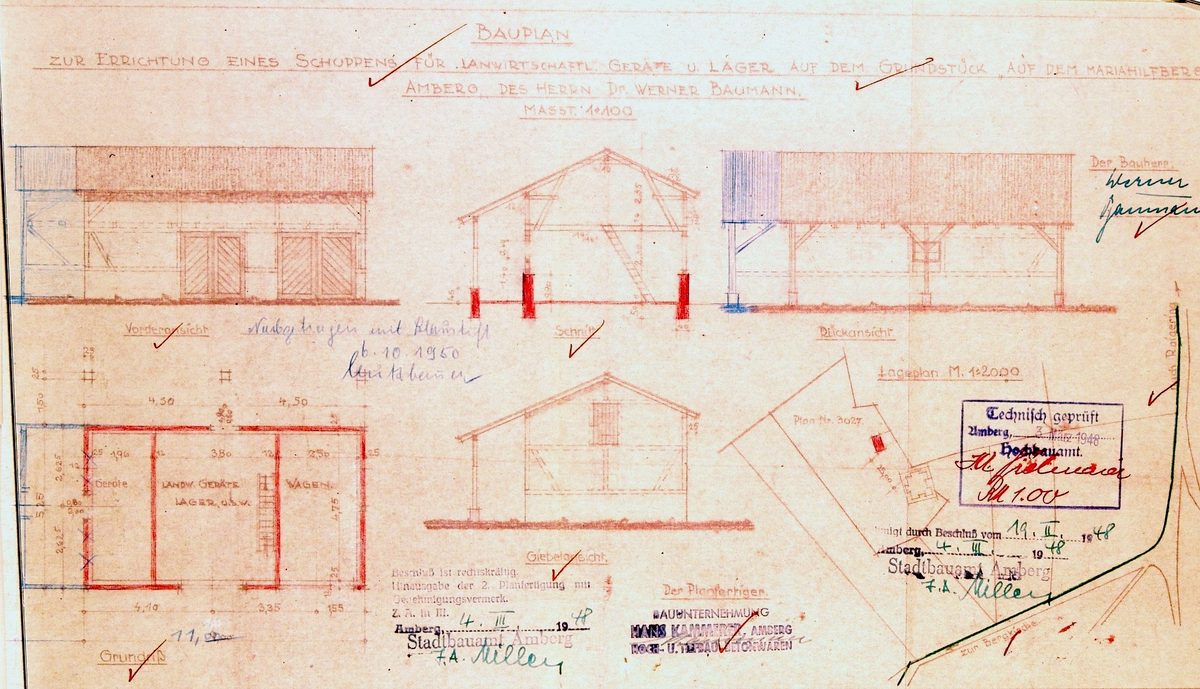 BAUPLAN
ZUR ERRICHTUNG EINES SCHUPPENS FÜR LANWIRTSCHAFTL. GERÄTE U. LÄGER AUF DEM GRUNDSTÜCK AUF DEM MARIAHILFBERG
AMBERG, DES HERRN DR. WERNER BAUMANN.
MASST. 1:100
Der Bauherr:
Werner
Baumann
Vorderansicht
Schnitt
Rückansicht
mit Blaustift
6.10.1950
Lageplan M. 1:2000
Plan Nr. 3027.
nach Raigering
Technisch geprüft
Amberg, 3. März 1948
Hochbauamt.
RM 1.00
4,50
4,50
25
150
5,25
2,625
2,625
25
1,96
12
3,80
12
2,50
25
Geräte
LANDW. GERÄTE
LAGER, U.S.W.
WAGEN.
4,75
4,10
3,35
155
11,
Grundriß
Giebelansicht.
durch Beschluß vom 19. II. 1948
Amberg, 4. III. 1948
Stadtbauamt Amberg
F.A. Miller
zur Bergwirthe
Beschluß ist rechtskräftig.
Hinausgabe der 2. Planfertigung mit
Genehmigungsvermerk.
Z. A. in III.
Amberg, 4. III 1948
Stadtbauamt Amberg
F.A. Miller
Der Planfertiger.
BAUUNTERNEHMUNG
HANS KAMMERER, AMBERG
HOCH- U. TIEFBAU, BETONWAREN